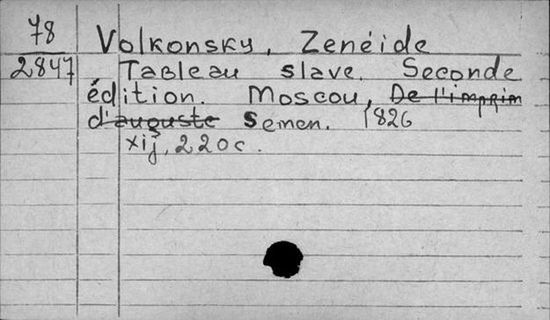 78
2847
Volkonsky, Zenéide
Tableau slave. Seconde
édition. Moscou, De l'imprim
d'auguste Semen. 1826
xij, 220c.